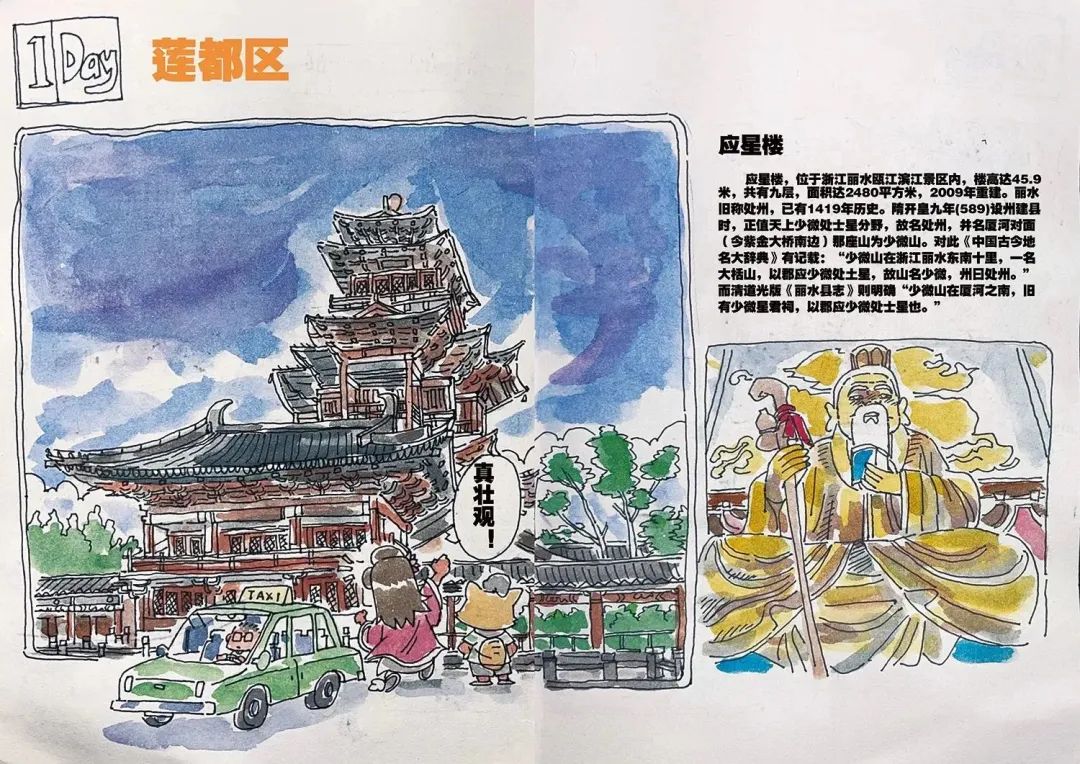 1 Day
莲都区
应星楼
应星楼，位于浙江丽水瓯江滨江景区内，楼高达45.9
米，共有九层，面积达2480平方米，2009年重建。丽水
旧称处州，已有1419年历史。隋开皇九年(589)设州建县
时，正值天上少微处士星分野，故名处州，并名厦河对面
（今紫金大桥南边）那座山为少微山。对此《中国古今地
名大辞典》有记载：“少微山在浙江丽水东南十里，一名
大括山，以郡应少微处士星，故山名少微，州曰处州。”
而清道光版《丽水县志》则明确“少微山在厦河之南，旧
有少微星君祠，以郡应少微处士星也。”
真壮观！
TAXI